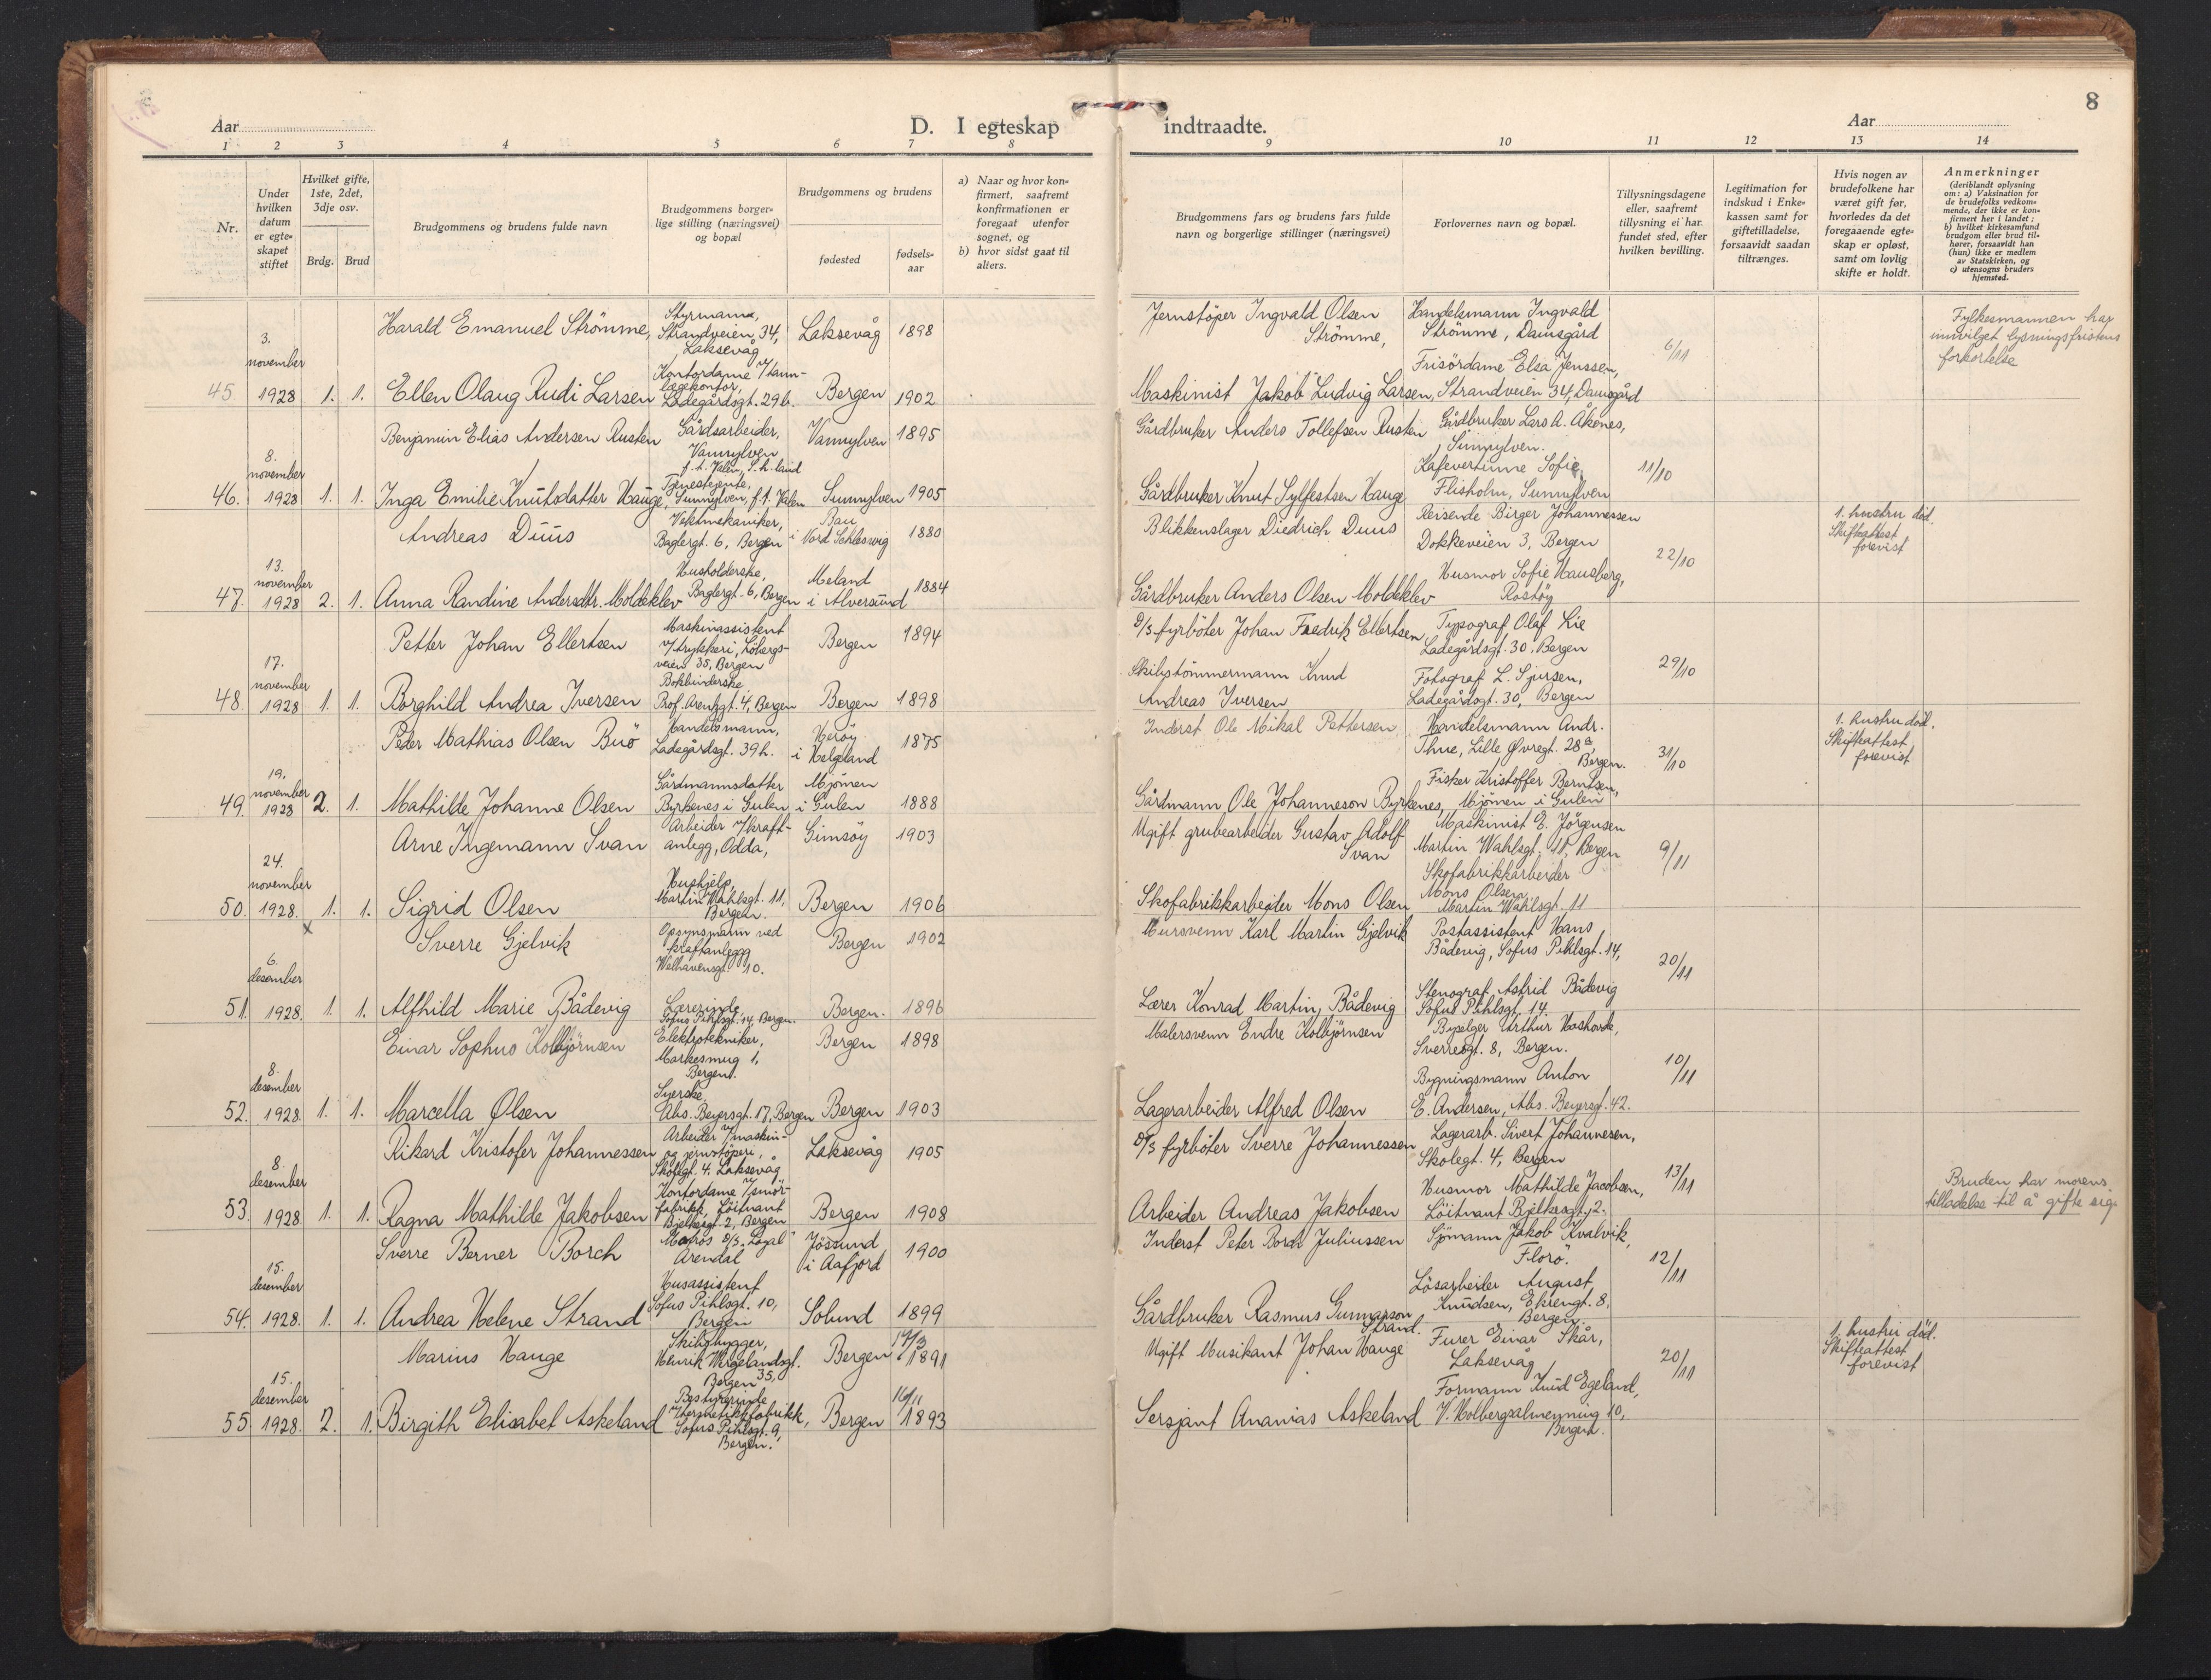 8
Aar
D. I egteskap
indtraadte.
Aar
1 2 3 4 5 6 7 8 9 10 11 12 13 14
Nr.
Under hvilken datum er egteskapet stiftet
Hvilket gifte, 1ste, 2det, 3dje osv.
Brdg. Brud
Brudgommens og brudens fulde navn
Brudgommens borgerlige stilling (næringsvei) og bopæl
Brudgommens og brudens
fødested
fødselsaar
a) Naar og hvor konfirmert, saafremt konfirmationen er foregaat utenfor sognet, og
b) hvor sidst gaat til alters.
Brudgommens fars og brudens fars fulde navn og borgerlige stillinger (næringsvei)
Forlovernes navn og bopæl.
Tillysningsdagene eller, saafremt tillysning ei har fundet sted, efter hvilken bevilling.
Legitimation for indskud i Enkekassen samt for giftetilladelse, forsaavidt saadan tiltrænges.
Hvis nogen av brudefolkene har været gift før, hvorledes da det foregaaende egteskap er opløst, samt om lovlig skifte er holdt.
Anmerkninger
(deriblandt oplysning om: a) Vaksination for de brudefolks vedkommende, der ikke er konfirmert her i landet; b) hvilket kirkesamfund brudgom eller brud tilhører, forsaavidt han (hun) ikke er medlem av Statskirken, og c) utensogns bruders hjemsted.
45 3. november 1928 1. 1.
Harald Emanuel Strömme, Styrmann, Strandveien 34, Laksevåg Laksevåg 1898
Jernstöper Ingvald Olsen Strömme, Handelsmann Ingvald Strömme, Damsgård 6/11
Fylkesmannen har innvilget lysningsfristens forkortelse
Ellen Olaug Rudi Larsen Kontordame v/tannlægekontor, Ladegårdsgt. 29b. Bergen 1902
Maskinist Jakob Ludvig Larsen, Frisördame Elsa Jenssen, Strandveien 34, Damsgård
46. 8. november 1928 1. 1.
Benjamin Elias Andersen Rusten Gårdsarbeider, Vannylven f.t. Valen, S.h.land Vannylven 1895
Gårdbruker Anders Tollefsen Rusten Gårdbruker Lars A. Åkenes, Sunnylven. 11/10
Inga Emilie Knutsdatter Hauge, Tjenestejente, Sunnylven, f.t. Valen Sunnylven 1905
Gårdbruker Knut Sylfestsen Hauge Kafevertinne Sofie Flisholm, Sunnylven
47. 13. november 1928 2. 1.
Andreas Duus Vektmekaniker, Baglergt. 6, Bergen Bau i Nord Schleswig 1880
Blikkenslager Diedrich Duus Reisende Birger Johannessen Dokkeveien 3, Bergen 22/10
1. hustru död. Skifteattest forevist
Anna Randine Andersdtr. Moldeklev Husholderske, Baglergt. 6, Bergen Meland i Alversund 1884
Gårdbruker Anders Olsen Moldeklev Husmor Sofie Hausberg, Rostöy
48. 17. november 1928 1. 1.
Petter Johan Ellertsen Maskinassistent v/trykkeri, Lobergsveien 35, Bergen Bergen 1894
D/s fyrböter Johan Fredrik Ellertsen Typograf Olaf Lie Ladegårdsgt. 30, Bergen 29/10
Borghild Andrea Iversen Bokbinderske Prof. Arentzgt. 4, Bergen Bergen 1898
Skibstömmermann Knud Andreas Iversen Fotograf L. Sjursen, Ladegårdsgt. 30, Bergen
49. 19. november 1928 2. 1.
Peder Mathias Olsen Buö Handelsmann, Ladegårdsgt. 39 b. Heröy i Helgeland 1875
Inderst Ole Mikal Pettersen Handelsmann Andr. Thue, Lille Øvregt. 28a, Bergen. 31/10
1. hustru död. Skifteattest forevist
Mathilde Johanne Olsen Gårdmannsdatter Byrkenes i Gulen Mjömen i Gulen 1888
Gårdmann Ole Johanneson Byrkenes, Fisker Kristoffer Berntsen, Mjömen i Gulen
50. 24. november 1928. 1. 1.
x
Arne Ingemann Svan Arbeider v/kraftanlegg, Odda, Gimsöy 1903
Ugift grubearbeider Gustav Adolf Svan Maskinist E. Jörgensen Martin Wahlsgt. 11, Bergen 9/11
Sigrid Olsen Hushjelp, Martin Wahlsgt. 11, Bergen. Bergen 1906
Skofabrikkarbeider Mons Olsen Skofabrikkarbeider Mons Olsen Martin Wahlsgt. 11
51. 6. desember 1928. 1. 1.
Sverre Gjelvik Opsynsmann ved kraftanlegg Welhavensgt. 10. Bergen 1902
Mursvenn Karl Martin Gjelvik Postassistent Hans Bådevig, Sofus Pihlsgt. 14, 20/11
Alfhild Marie Bådevig Lærerinde Sofus Pihlsgt. 14 Bergen. Bergen. 1896
Lærer Konrad Martin Bådevig Stenograf Astrid Bådevig Sofus Pihlsgt. 14.
52. 8. desember 1928. 1. 1.
Einar Sophus Kolbjörnsen Elektrotekniker, Markesmug 1, Bergen. Bergen 1898
Malersvenn Endre Kolbjörnsen Byselger Arthur Sverresgt. 8, Bergen. 10/11
Marcella Olsen Syerske, Abs. Beyersgt. 17, Bergen Bergen 1903
Lagerarbeider Alfred Olsen Bygningsmann Anton E. Andersen, Abs. Beyersgt. 42.
53. 8. desember 1928. 1. 1.
Rikard Kristofer Johannessen Arbeider v/maskin- og jernstöperi, Skolegt. 4. Laksevåg Laksevåg 1905
D/s fyrböter Sverre Johannessen Lagerarb. Sivert Johannesen, Skolegt. 4, Bergen 13/11
Ragna Mathilde Jakobsen Kontordame v/smörfabrikk, Löitnant Bjelkesgt. 2, Bergen Bergen 1908
Arbeider Andreas Jakobsen Husmor Mathilde Jacobsen, Löitnant Bjelkesgt. 2.
Bruden har morens tilladelse til å gifte sig.
54. 15. desember 1928. 1. 1.
Sverre Berner Borch Matros D/s. "Loyal" Arendal Jössund i Aafjord 1900
Inderst Peter Borch Juliussen Sjömann Jakob Kvalvik, Florö. 12/11
Andrea Helene Strand Husassistent Sofus Pihlsgt. 10, Bergen Solund 1899
Gårdbruker Rasmus Gunnarson Strand. Lösarbeider August Knudsen, Ekrengt. 8, Bergen.
55. 15. desember 1928. 2. 1.
Marius Hauge Skibsbygger, Henrik Wergelandsgt. 35, Bergen Bergen 19/3 1891
Ugift Musikant Johan Hauge Furer Einar Skår, Laksevåg 20/11
1. hustru död. Skifteattest forevist
Birgith Elisabet Askeland Bestyrerinde v/hermetikkfabrikk, Sofus Pihlsgt. 9, Bergen. Bergen 16/11 1893
Sersjant Ananias Askeland Formann Knud Egeland, V. Holbergsalmenning 10, Bergen.